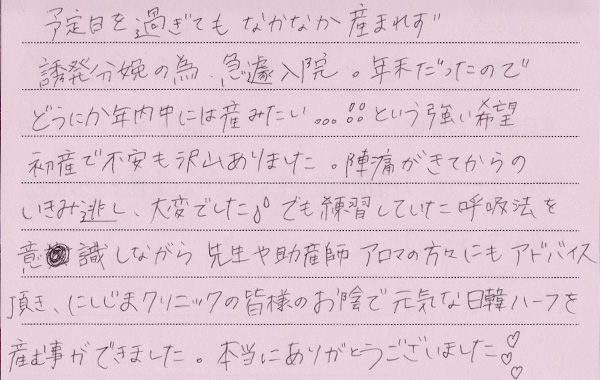 予定日を過ぎてもなかなか産まれず
誘発分娩の為、急遽入院。年末だったので
どうにか年内中には産みたい…!!という強い希望
初産で不安も沢山ありました。陣痛がきてからの
いきみ逃し、大変でした!!でも練習していた呼吸法を
意識しながら 先生や助産師 アロマの方々にも アドバイス
頂き、にしじまクリニックの皆様のお陰で元気な日韓ハーフを
産む事ができました。本当にありがとうございました♡♡♡